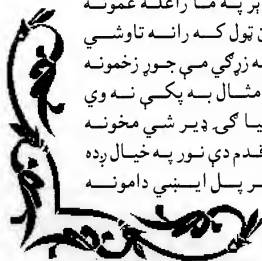 ډېر په ما راغله غمونه
ټول که رانه تاوشي
زړګي مې جوړ زخمونه
مثال به پکې نه وي
بيا ګی ډېر شي مخونه
قدم دې نور په خيال ږده
پل ايښي دامونه